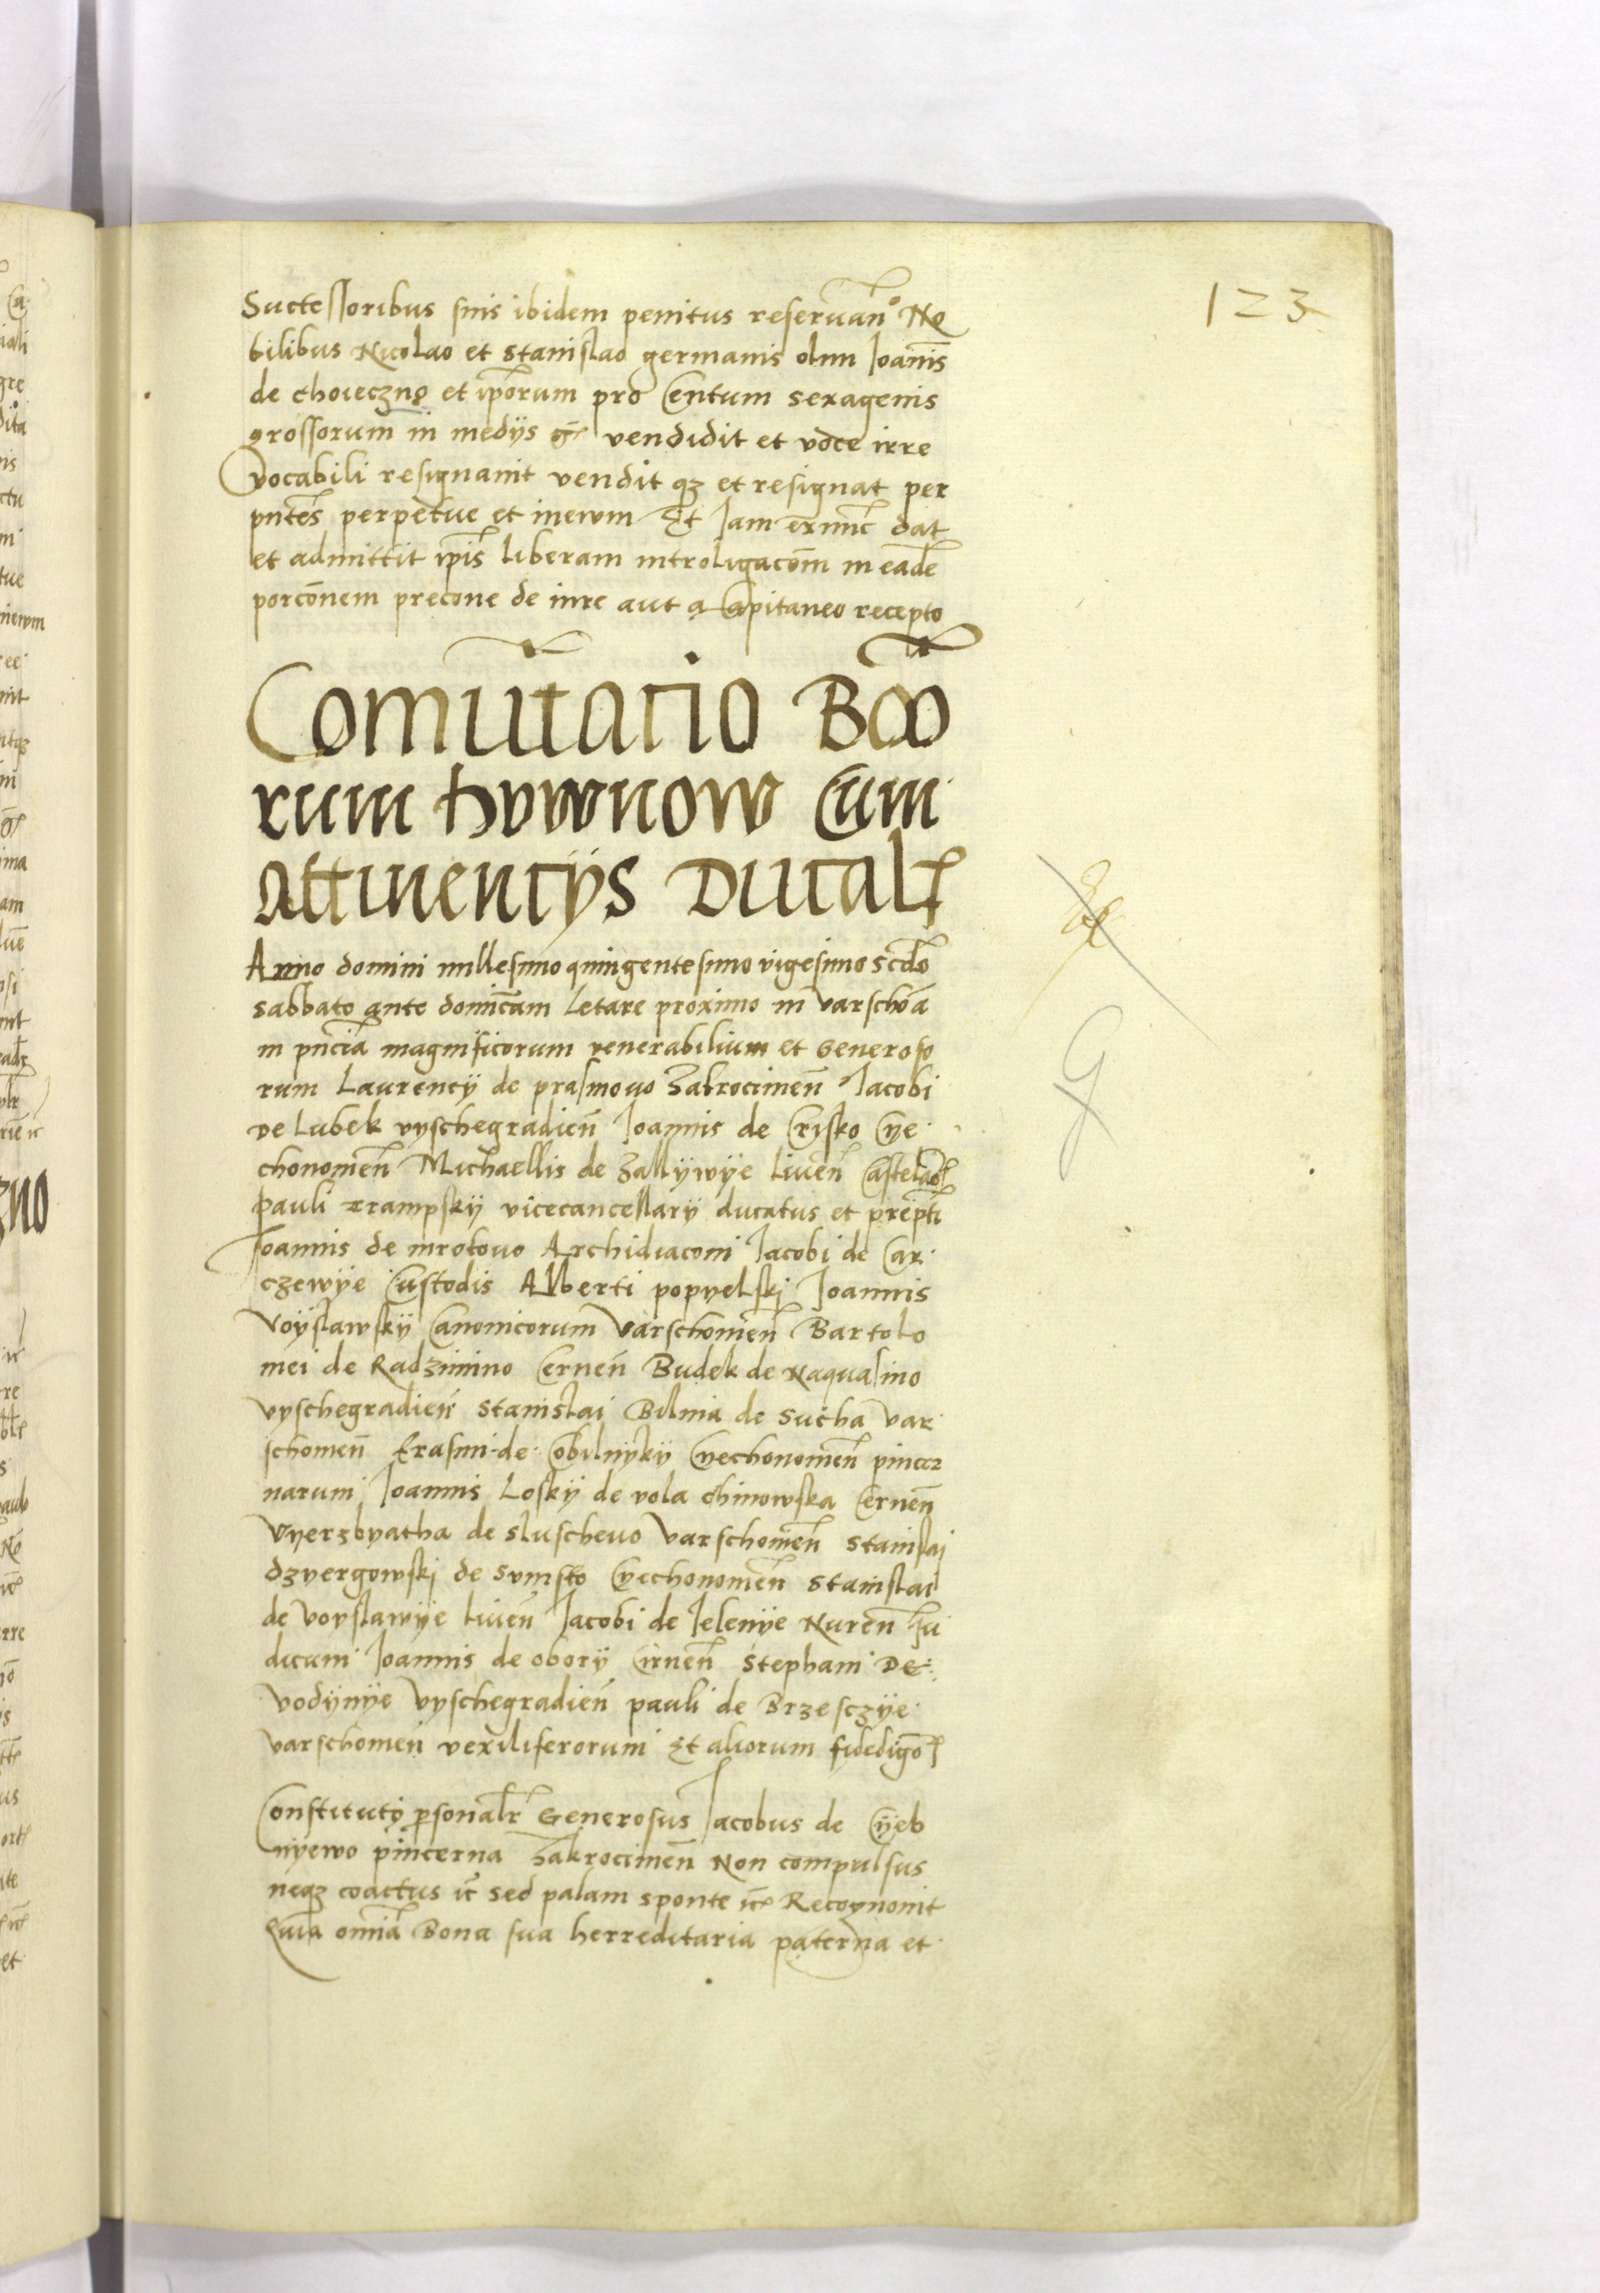 123
Successoribus suis ibidem penitus reseruan̄o No
bilibus Nicolao et Stanislao germanis olim Joānis
de Choieczno et ip̄orum pro Centum sexagenis
grossorum in medijs gͬ vendidit et voce irre
vocabili resignauit vendit qꝫ et resignat per
pn̄tes perpetue et in ewm Et Jam exnūc dat
et admittit ip̄is liberam introligacōm in eadē
porcōnem precone de iure aut a Capitaneo recepto
Comutatio Boo
rum hvwnow Cum
attinencijs Ducalꝭ
Anno domini millesimo quingentesimo vigesimo scd̄o
sabbato ante domīcam Letare proximo in Varschōa
in pn̄cia magnificorum venerabilium et Generoso
rum Laurencij de prasmouo Zakrocimen̄ Jacobi
de Lubek vyschegradien̄ Joannis de Crysko Cye
chonomen̄ Michaellis de Zallÿwÿe Liuen̄ Castelaōꝝ
pauli Krampskÿ vicecancellarÿ ducatus et prep̄ti
Joannis de mrokouo Archidiaconi Jacobi de Car
czewÿe Custodis Alberti popyelskj Joannis
Voÿslawskÿ Canonicorum Varschomen̄ Bartolo
mei de Radzimino Cernen̄ Budek de Naquasino
vyschegradien̄ Stanislai Bilina de Sucha Var
schomen̄ Erasmi de Cobilnÿkÿ Cyechonomen̄ pincer
narum Joannis Loskÿ de vola Chinowska Cernen̄
Vyerzbyatha de Sluscheuo Varschomen̄ Stanislaj
dzyergowskj de Symsko Cyechonomen̄ Stanislai
de Voyslawÿe Liuen̄ Jacobi de Jelenÿe Nuren̄ Ju
dicum Joannis de oborÿ Cirnen̄ Stephani De
Vodÿnÿe Vyschegradien̄ pauli de Brzesczÿe
Varschomen̄ vexiliferorum Et aliorum fidedigōꝝ
Constitutꝰ ꝑsonalr̄ Generosus Jacobus de Cyeb
nyewo pincerna Zakrocimen̄ Non compulsus
neqꝫ coactus ic̄ sed palam sponte ic̄ Recognouit
Quia om̄ia Bona sua herreditaria paterna et